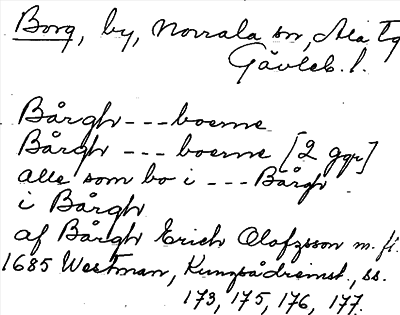 Borg, by, Norrala sn, Ala tg
Gävleb. l.
Bårgh---boerne
Bårgh --- boerne [2 ggr]
alle som bo i --- Bårgh
i Bårgh
af Bårgh Erich Olofzsson m. fl.
1685 Westman, Kungsådreinst., ss.
173, 175, 176, 177.